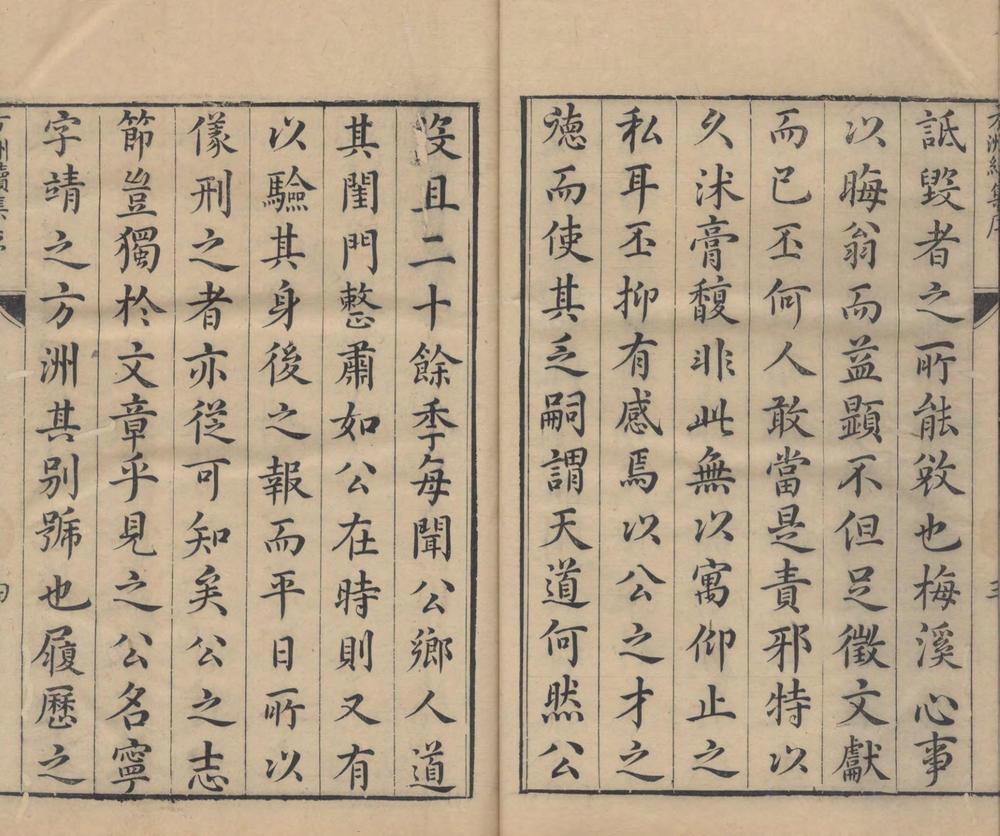 詆毀者之所能敓也梅溪心事
以晦翁而益顯不但足徵文獻
而已丕何人敢當是責邪特以
久沐膏馥非此無以寓仰止之
私耳丕抑有感焉以公之才之
德而使其乏嗣謂天道何然公
歿且二十餘秊每聞公鄉人道
其閨門整肅如公在時則又有
以驗其身後之報而平日所以
儀刑之者亦從可知矣公之志
節豈獨於文章乎見之公名寧
字靖之方洲其別號也履歷之
方洲續集序